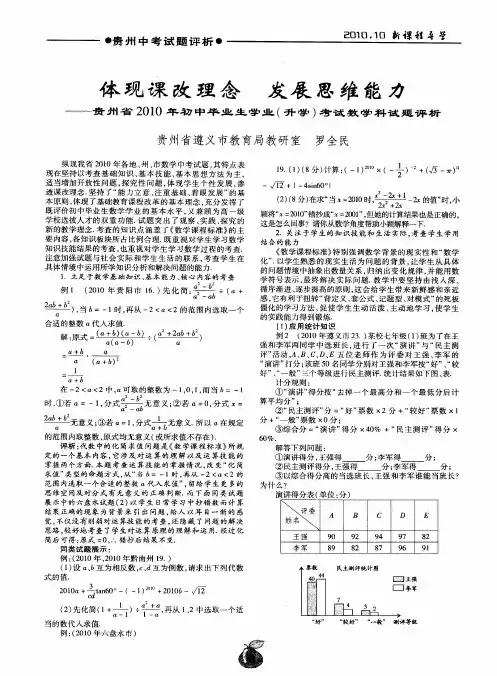 ●贵州中考试题评析●
2010.10 新课程导学
体现课改理念 发展思维能力
——贵州省2010年初中毕业生学业(升学)考试数学科试题评析
贵州省遵义市教育局教研室 罗全民
纵观我省2010年各地、州、市数学中考试题,其特点表
现在坚持以考查基础知识、基本技能、基本思想方法为主,
适当增加开放性问题,探究性问题,体现学生个性发展,渗
透课改理念.坚持了“能力立意,注重基础,着眼发展”的基
本原则,体现了基础教育课程改革的基本理念,充分发挥了
既评价初中毕业生数学学业的基本水平,又兼顾为高一级
学校选拔人才的双重功能.试题突出了观察、实践、探究的
新的教学理念.考查的知识点涵盖了《数学课程标准》的主
要内容,各知识板块所占比例合理.既重视对学生学习数学
知识技能结果的考查,也重视对学生学习数学过程的考查.
注意加强试题与社会实际和学生生活的联系,考查学生在
具体情境中运用所学知识分析和解决问题的能力.
1. 立足于数学基础知识、基本能力、核心内容的考查
例1 (2010年贵阳市16.)先化简:(a²-b²)/(a²-ab)÷(a+
(2ab+b²)/a),当b=-1时,再从-2<a<2的范围内选取一个
合适的整数a代入求值.
解:原式=(a+b)(a-b)/a(a-b)÷(a²+2ab+b²)/a
=(a+b)/a·a/(a+b)²
=1/(a+b)
在-2<a<2中,a可取的整数为-1,0,1,而当b=-1
时.①若a=-1,分式(a²-b²)/(a²-ab)无意义;②若a=0,分式
(2ab+b²)/a无意义;③若a=1,分式1/(a+b)无意义.所以a在规定
的范围内取整数,原式均无意义(或所求值不存在).
评析:代数中的化简求值问题是《数学课程标准》所规
定的一个基本内容,它涉及对运算的理解以及运算技能的
掌握两个方面.本题考查运算技能的掌握情况,改变“化简
求值”类型的命题方式,从“当b=-1时,再从-2<a<2的
范围内选取一个合适的整数a代入求值”,留给学生更多的
思维空间及对分式有无意义的正确判断,而下面同类试题
展示中的六盘水试题(2)以学生日常学习中抄错数而计算
结果正确的现象为背景来引出问题,给人以耳目一新的感
觉,不仅没有削弱对运算技能的考查,还隐藏了问题的解决
思路,较好地考查了学生对运算原理的理解和运用.经过化
简后可得:原式=0,∴错抄后结果不变.
同类试题展示:
例:(2010年,2010年黔南州19.)
(1)设a、b互为相反数,c、d互为倒数,请求出下列代数
式的值.
2010a+3/cd tan60°-(-1)²⁰¹⁰+2010b-√12
(2)先化简(1+1/(a-1))÷(a²+a)/(1-a),再从1,2中选取一个适
当的数代入求值.
例:(2010年六盘水市)
19.(1)(8分)计算:(-1)²⁰¹⁰×(-1/2)⁻²+(√3-π)⁰
-√12+|-4sin60°|
(2)(8分)在求“当x=2010时,(x²-2x+1)/(2x²+2x)-2x的值”时,小
颖将“x=2010”错抄成“x=2001”,但她的计算结果也是正确的,
这是怎么回事?请你从数学角度帮助小颖解释一下.
2. 关注于学生的知识技能和生活实际,考查学生学用
结合的能力
《数学课程标准》特别强调数学背景的现实性和“数学
化”.以学生熟悉的现实生活为问题的背景,让学生从具体
的问题情境中抽象出数量关系,归纳出变化规律,并能用数
学符号表示,最终解决实际问题.教学中要坚持由浅入深、
循序渐进、逐步提高的原则,这会给学生带来新鲜感和亲近
感,它有利于扭转“背定义、套公式、记题型、对模式”的死板
僵化的学习方法,促使学生生动活泼、主动地学习,使学生
的实践能力得到锻炼.
(1)应用统计知识
例2 (2010年遵义市23.)某校七年级(1)班为了在王
强和李军两同学中选班长,进行了一次“演讲”与“民主测
评”活动,A、B、C、D、E五位老师作为评委对王强、李军的
“演讲”打分;该班50名同学分别对王强和李军按“好”、“较
好”、“一般”三个等级进行民主测评.统计结果如下图、表.
计分规则:
①“演讲”得分按“去掉一个最高分和一个最低分后计
算平均分”;
②“民主测评”分=“好”票数×2分+“较好”票数×1
分+“一般”票数×0分;
③综合分=“演讲”得分×40%+“民主测评”得分×
60%.
解答下列问题:
①演讲得分,王强得____分;李军得____分;
②民主测评得分,王强得____分;李军得____分;
③以综合得分高的当选班长,王强和李军谁能当班长?
为什么?
演讲得分表(单位:分)
评委 姓名 A B C D E
王强 90 92 94 97 82
李军 89 82 87 96 91
票数 民主测评统计图
40 44 7 4 3 2
王强
李军
“好” “较好” “一般” 测评等级